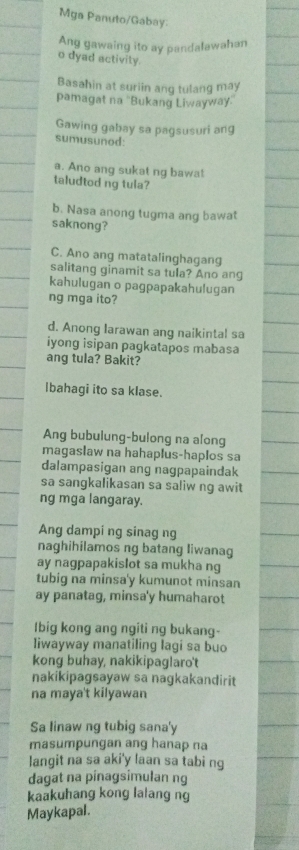 Mga Panuto/Gabay:
Ang gawaing ito ay pandalawahan
o dyad activity.
Basahin at suriin ang tulang may
pamagat na "Bukang Liwayway."
Gawing gabay sa pagsusuri ang
sumusunod:
a. Ano ang sukat ng bawat
taludtod ng tula?
b. Nasa anong tugma ang bawat
saknong?
C. Ano ang matatalinghagang
salitang ginamit sa tula? Ano ang
kahulugan o pagpapakahulugan
ng mga ito?
d. Anong larawan ang naikintal sa
iyong isipan pagkatapos mabasa
ang tula? Bakit?
Ibahagi ito sa klase.
Ang bubulung-bulong na along
magaslaw na hahaplus-haplos sa
dalampasigan ang nagpapaindak
sa sangkalikasan sa saliw ng awit
ng mga langaray.
Ang dampi ng sinag ng
naghihilamos ng batang liwanag
ay nagpapakislot sa mukha ng
tubig na minsa'y kumunot minsan
ay panatag, minsa'y humaharot
Ibig kong ang ngiti ng bukang-
liwayway manatiling lagi sa buo
kong buhay, nakikipaglaro't
nakikipagsayaw sa nagkakandirit
na maya't kilyawan
Sa linaw ng tubig sana'y
masumpungan ang hanap na
langit na sa aki'y laan sa tabi ng
dagat na pinagsimulan ng
kaakuhang kong lalang ng
Maykapal.